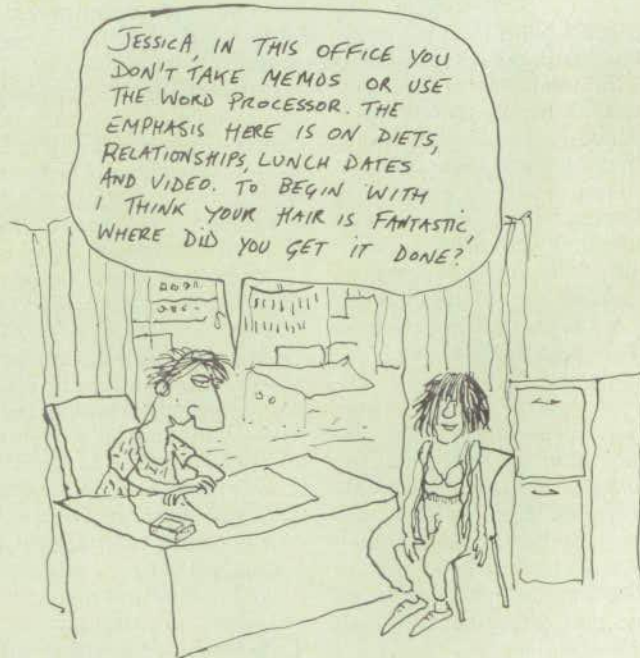 JESSICA, IN THIS OFFICE YOU
DON'T TAKE MEMOS OR USE
THE WORD PROCESSOR. THE
EMPHASIS HERE IS ON DIETS,
RELATIONSHIPS, LUNCH DATES
AND VIDEO. TO BEGIN WITH
I THINK YOUR HAIR IS FANTASTIC,
WHERE DID YOU GET IT DONE?